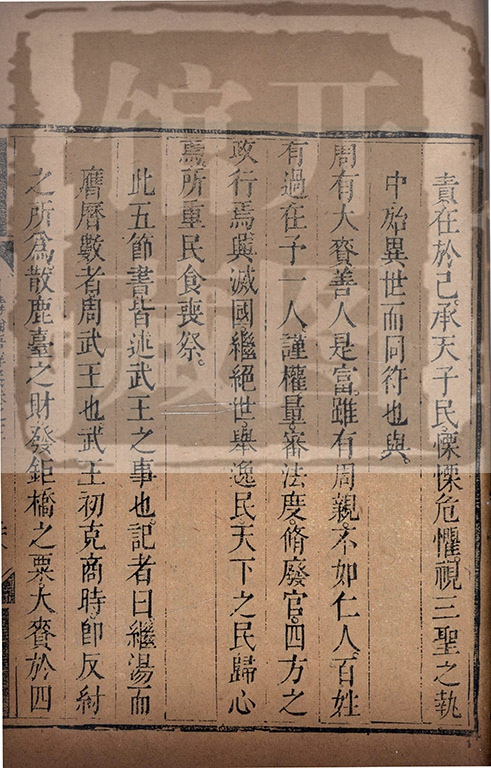 責在於己承天子民慄慄危懼視三聖之執
中殆異世而同符也與
周有大賚善人是富雖有周親不如仁人百姓
有過在予一人謹權量審法度脩廢官四方之
政行焉興滅國繼絕世舉逸民天下之民歸心
焉所重民食喪祭
此五節書皆述武王之事也記者曰繼湯而
膺曆數者周武王也武王初克商時即反紂
之所為散鹿臺之財發鉅橋之粟大賚於四